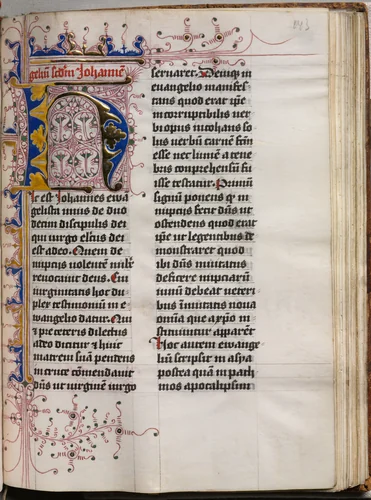 geliũ scd̃m Johannẽ
Hic est Johannes ewa
gelista unus de duo
decim discipulis dei
qui virgo elc̃us dei
est adeo. Quem de
nuptiis volentẽ nub̃e
revocavit deus. Cui
virginitatis hoc du
plex testimoniũ in e
wangelio datur. Quia
⁊ pre ceteris dilectus
adeo dicitur ⁊ huic
matrem suam pendens
in cruce cõmendavit
dñs ut virginẽ virgo
servaret. Deniq̃ in
evangelio manifes
tans quod erat ip̃e
incorruptibilis ver
bi opus inchoans so
lus verbũ carnẽ fc̃m
esse nec lumẽ a tene
bris comprehensũ fu
isse testatur. Primũ
signũ ponens q̃ in
nuptiis fecit dñs ut
ostendens quod erat
ip̃e ut legentibus de
monstraret quod
ubi dñs invitatus
deficere nuptiarũ
vinũ debeat veteri
bus inmutatis nova
omnia que a xp̃o in
stituuntur appareãt
Hoc autem ewange
liũ scripsit in asya
postea quã in path
mos apocalipsim